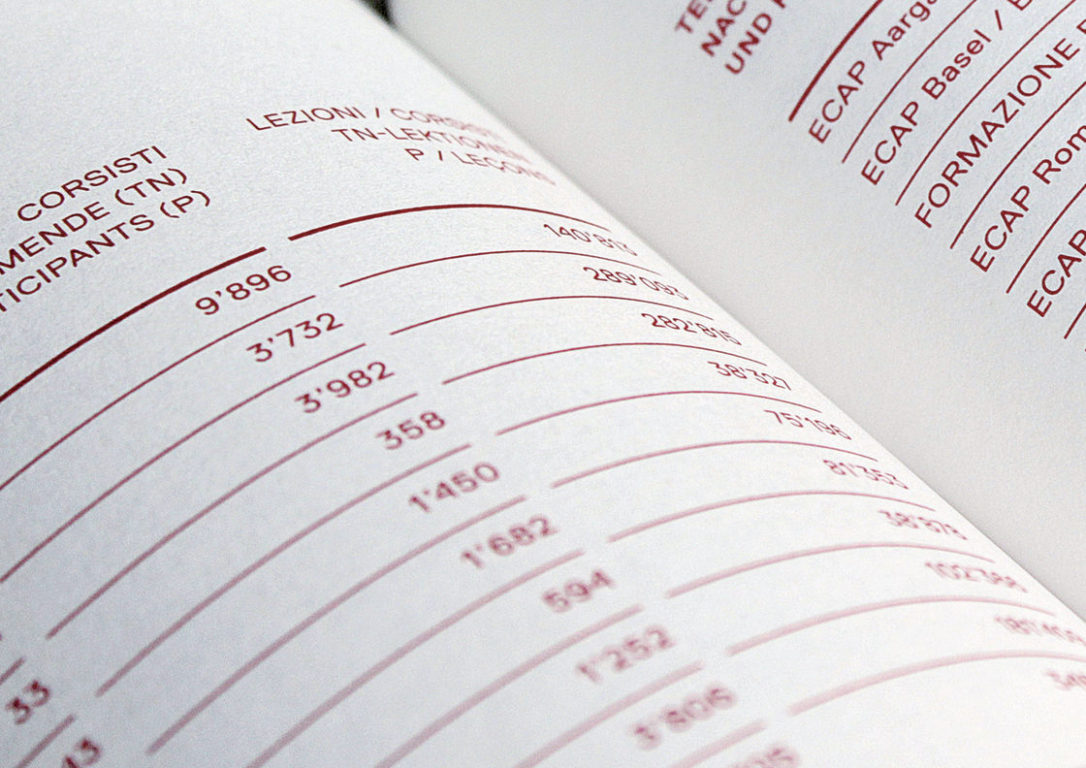 CORSISTI
MENDE (TN)
TICIPANTS (P)
LEZIONI / CORSISTI
TN-LEKTIONEN
P / LEÇONS
9'896 140'813
3'732 289'093
3'982 282'815
358 38'327
1'450 75'196
1'682 81'353
594
1'252
3'806
33
43
UND
ECAP Aarga
ECAP Basel / E
FORMAZIONE
ECAP Rom
ECAP